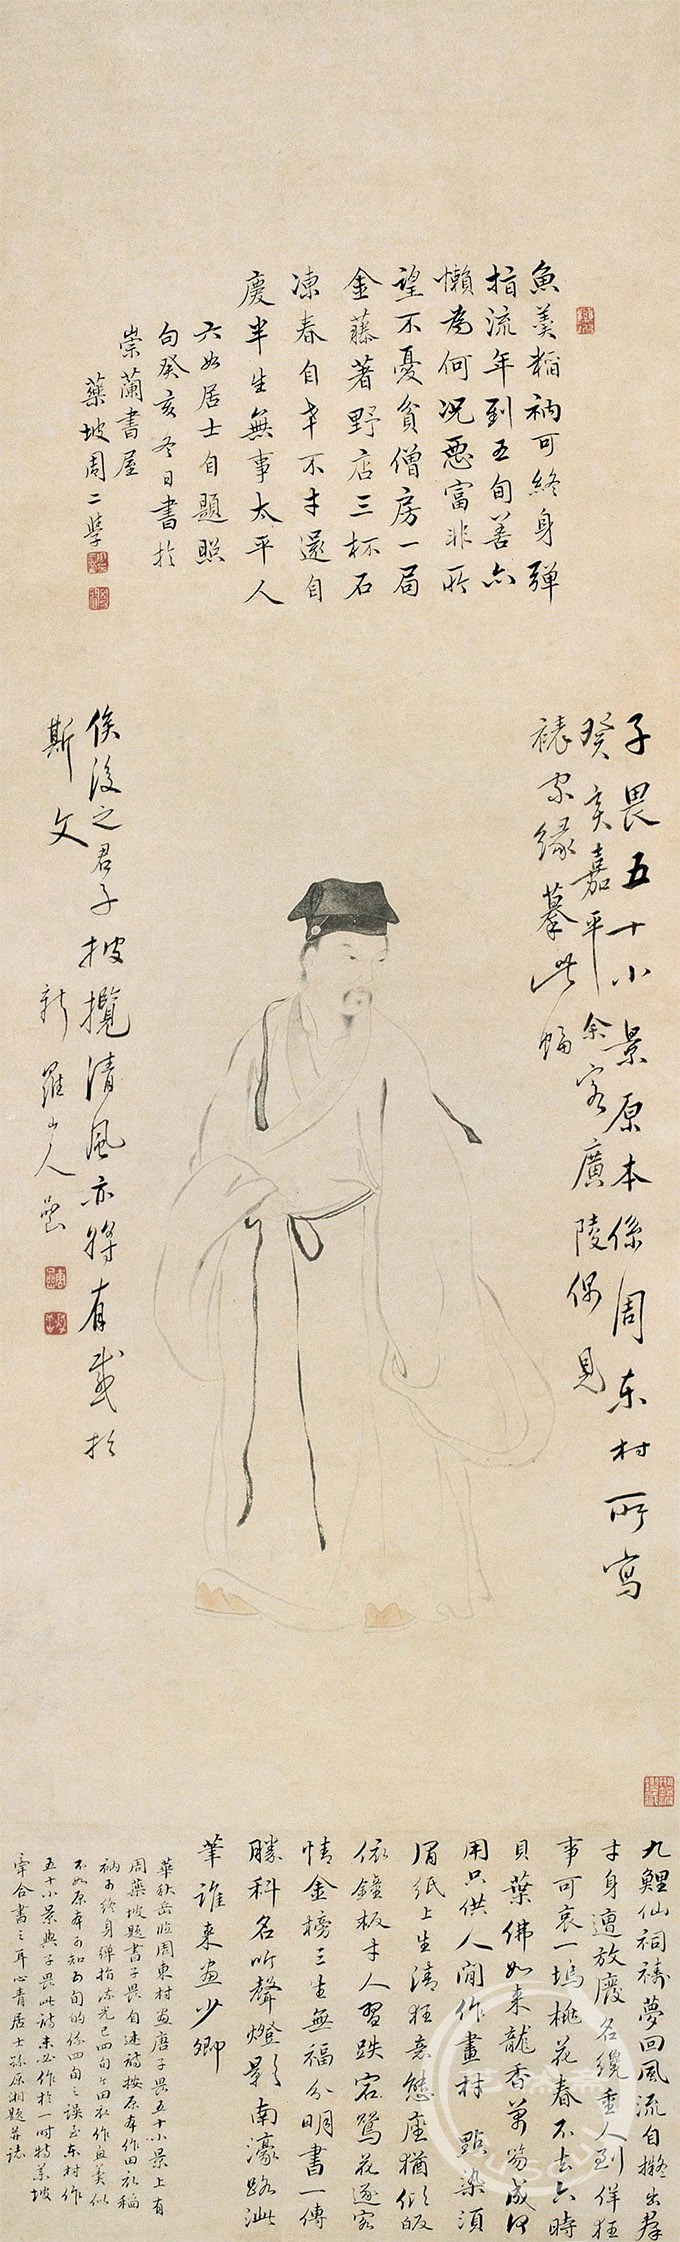 魚羹稻衲可終身彈
指流年到五旬善亦
懶為何況惡富非所
望不憂貧僧房一局
金藤著野店三杯石
凍春自幸不才還自
慶半生無事太平人
六如居士自題照
句癸亥冬日書於
崇蘭書屋
藥坡周二學
子畏五十小景原本係周東村所寫
癸亥嘉平余客廣陵偶見
裱家緣摹此幅
俟後之君子披攬清風亦將有感於
斯文
新羅山人嵒
九鯉仙祠禱夢回風流自擬出群
才身遭放廢名纔重人到佯狂
事可哀一塢桃花春不去六時
貝葉佛如來龍香萬笏成何
用只供人間作畫材 點染須
眉紙上生清狂意態座猶傾皈
依鐘板才人習跌宕鶯花逐客
情金榜三生無福分明書一傳
勝科名吟聲燈影南濠路此
筆誰來畫少卿
華秋岳臨周東村畫唐子畏五十小景上有
周藥坡題書子畏自述詩按原本作田衣稻
衲可終身彈指流光已四旬今田衣作魚羹似
不如原本可知勿旬的係四旬之誤至東村作
五十小景與子畏此詩未必作於一時特藥坡
牽合書之耳心青居士孫原湘題并誌